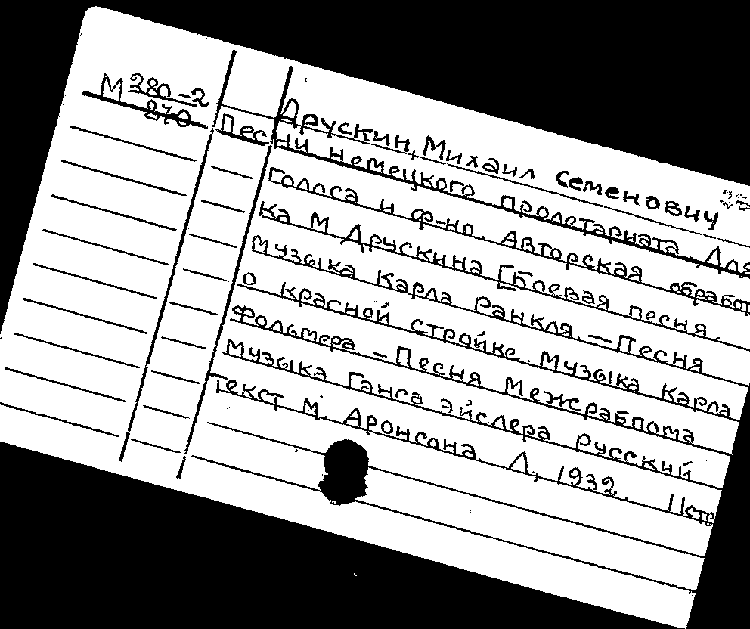 М 280-2
270
Друскин, Михаил Семенович
Песни немецкого пролетариата. Для
голоса и ф-но. Авторская обработ
ка М Друскина [Боевая песня.
Музыка Карла Ранкля. — Песня
о красной стройке. Музыка Карла
Фольтера — Песня Межрабпома
Музыка Ганса Эйслера Русский
текст М. Аронсона. Л., 1932. 11стр